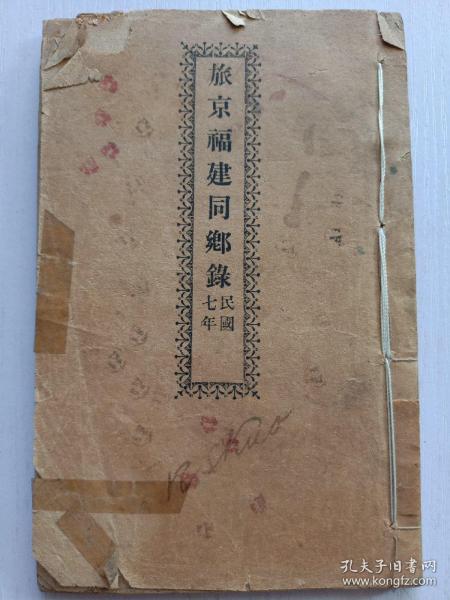 旅京福建同鄉錄
民國
七年
孔夫子旧书网
www.kongfz.com